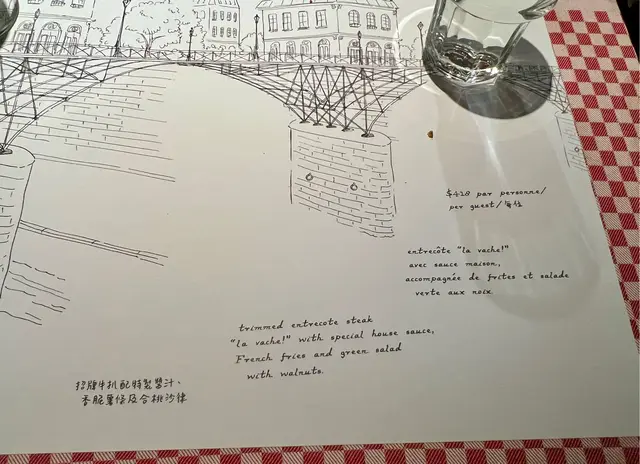 $428 par personne/
per guest/每位
entrecôte "la vache!"
avec sauce maison,
accompagnée de frites et salade
verte aux noix.
trimmed entrecote steak
"la vache!" with special house sauce,
French fries and green salad
with walnuts.
招牌牛扒配特製醬汁、
香脆薯條及合桃沙律